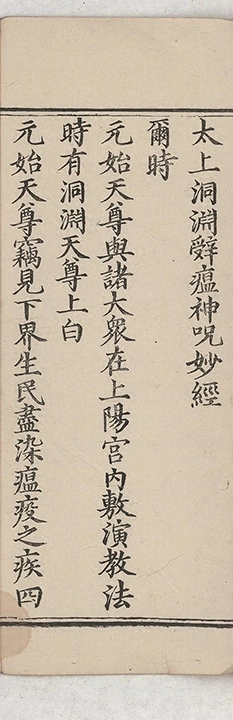 太上洞淵辤瘟神咒妙經
爾時
元始天尊與諸大衆在上陽宮內敷演教法
時有洞淵天尊上白
元始天尊竊見下界生民盡染瘟疫之疾四